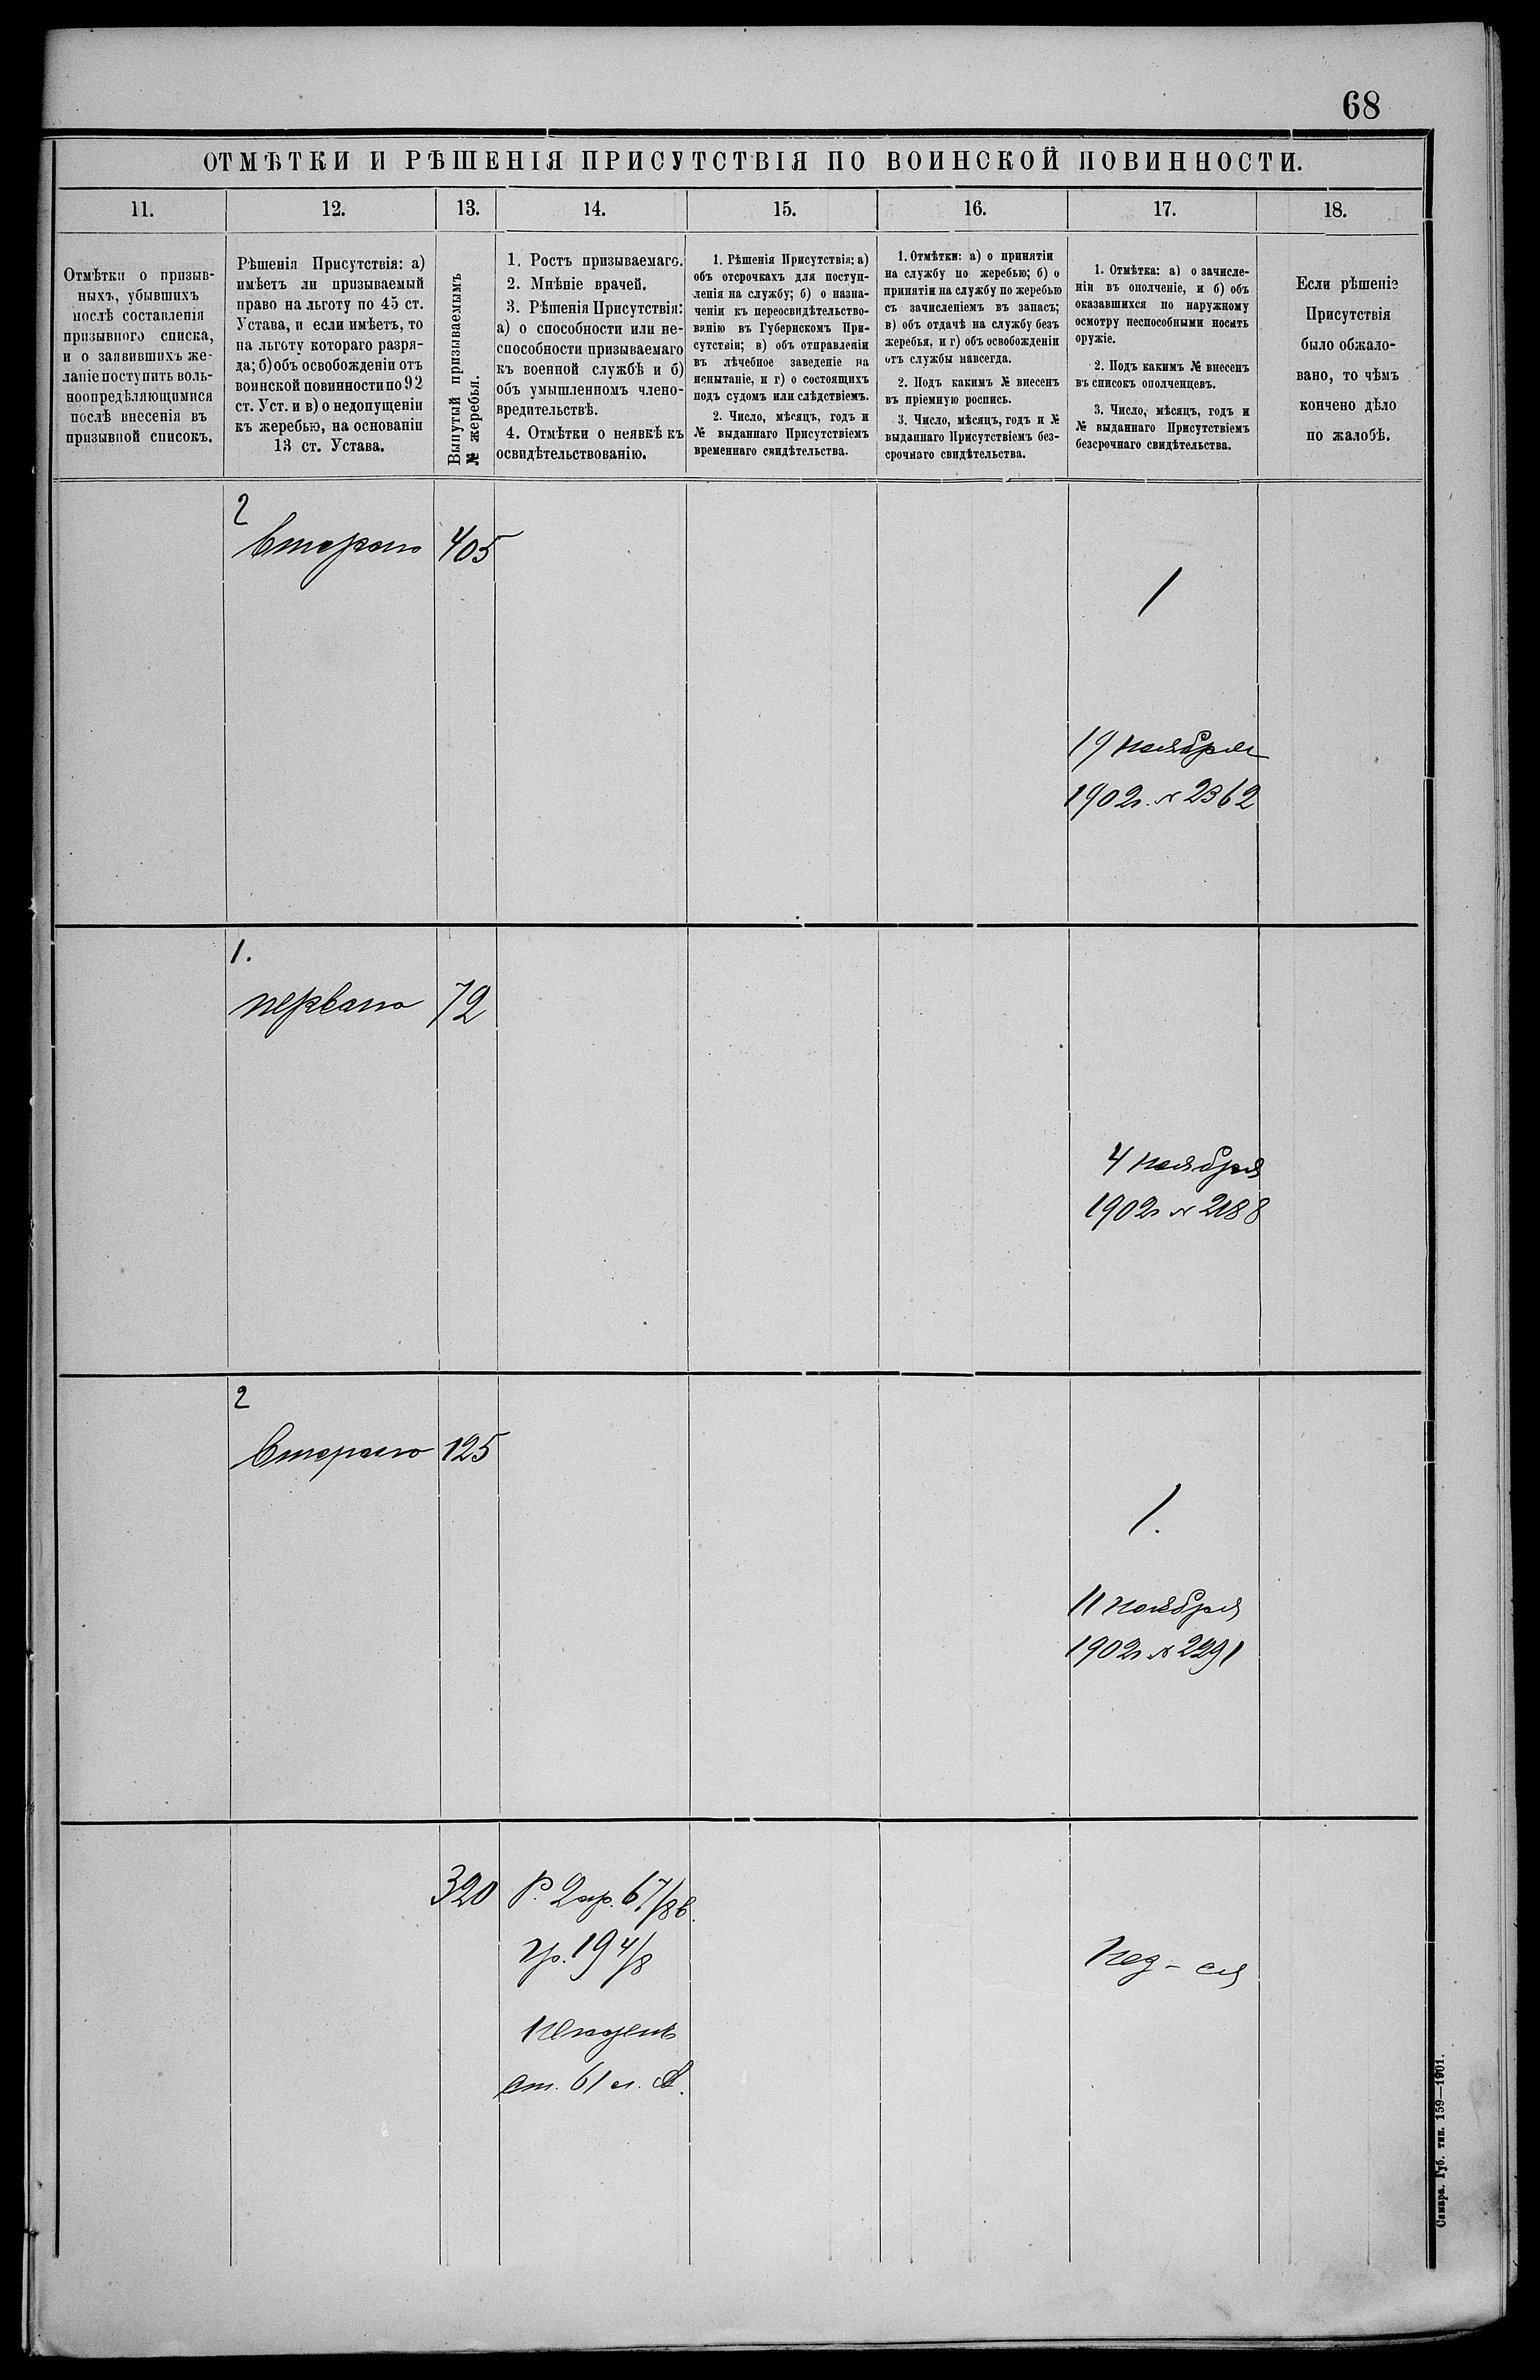 68
ОТМѢТКИ И РѢШЕНІЯ ПРИСУТСТВІЯ ПО ВОИНСКОЙ ПОВИННОСТИ.
11.
12.
13.
14.
15.
16.
17.
18.
Отмѣтки о призыв-
ныхъ, убывшихъ
послѣ составленія
призывного списка,
и о заявившихъ же-
ланіе поступить воль-
ноопредѣляющимися
послѣ внесенія въ
призывной списокъ.
Рѣшенія Присутствія: а)
имѣетъ ли призываемый
право на льготу по 45 ст.
Устава, и если имѣетъ, то
на льготу котораго разря-
да; б) объ освобожденіи отъ
воинской повинности по 92
ст. Уст. и в) о недопущеніи
къ жеребью, на основаніи
13 ст. Устава.
Вынутый призываемымъ
№ жеребья.
1. Ростъ призываемаго.
2. Мнѣніе врачей.
3. Рѣшенія Присутствія:
а) о способности или не-
способности призываемаго
къ военной службѣ и б)
объ умышленномъ члено-
вредительствѣ.
4. Отмѣтки о неявкѣ къ
освидѣтельствованію.
1. Рѣшенія Присутствія: а)
объ отсрочкахъ для поступ-
ленія на службу; б) о назна-
ченіи къ переосвидѣтельство-
ванію въ Губернскомъ При-
сутствіи; в) объ отправленіи
въ лѣчебное заведеніе на
испытаніе, и г) о состоящихъ
подъ судомъ или слѣдствіемъ.
2. Число, мѣсяцъ, годъ и
№ выданнаго Присутствіемъ
временнаго свидѣтельства.
1. Отмѣтки: а) о принятіи
на службу по жеребью; б) о
принятіи на службу по жеребью
съ зачисленіемъ въ запасъ;
в) объ отдачѣ на службу безъ
жеребья, и г) объ освобожденіи
отъ службы навсегда.
2. Подъ какимъ № внесенъ
въ пріемную роспись.
3. Число, мѣсяцъ, годъ и №
выданнаго Присутствіемъ без-
срочнаго свидѣтельства.
1. Отмѣтка: а) о зачисле-
ніи въ ополченіе, и б) объ
оказавшихся по наружному
осмотру неспособными носить
оружіе.
2. Подъ какимъ № внесенъ
въ списокъ ополченцевъ.
3. Число, мѣсяцъ, годъ и
№ выданнаго Присутствіемъ
безсрочнаго свидѣтельства.
Если рѣшеніе
Присутствія
было обжало-
вано, то чѣмъ
кончено дѣло
по жалобѣ.
2
Втораго
405
1
19 Ноября
1902г. № 2362
1.
перваго
72
4 Ноября
1902г № 2188
2
Втораго
125
1.
11 Ноября
1902г № 2291
320
Р. 2 ар. 6 7/8 в.
гр. 19 4/8
Негоденъ
ст. 61 л. А.
Нез-ся
Самара. Губ. тип. 159—1901.